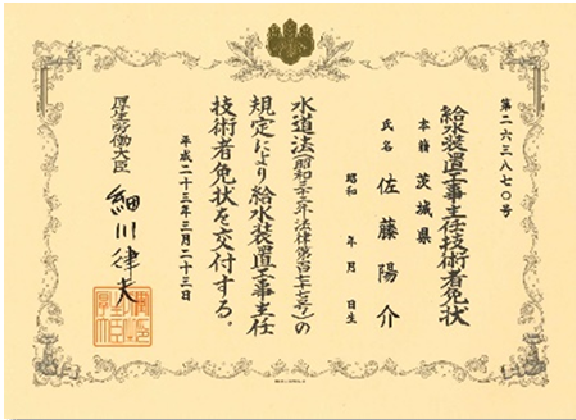 第二六三八七〇号
給水装置工事主任技術者免状
本籍 茨城県
氏名 佐藤陽介
昭和 年 月 日生
水道法(昭和三十二年法律第百七十七号)の
規定により給水装置工事主任
技術者免状を交付する。
平成二十三年三月二十三日
厚生労働大臣 細川律夫